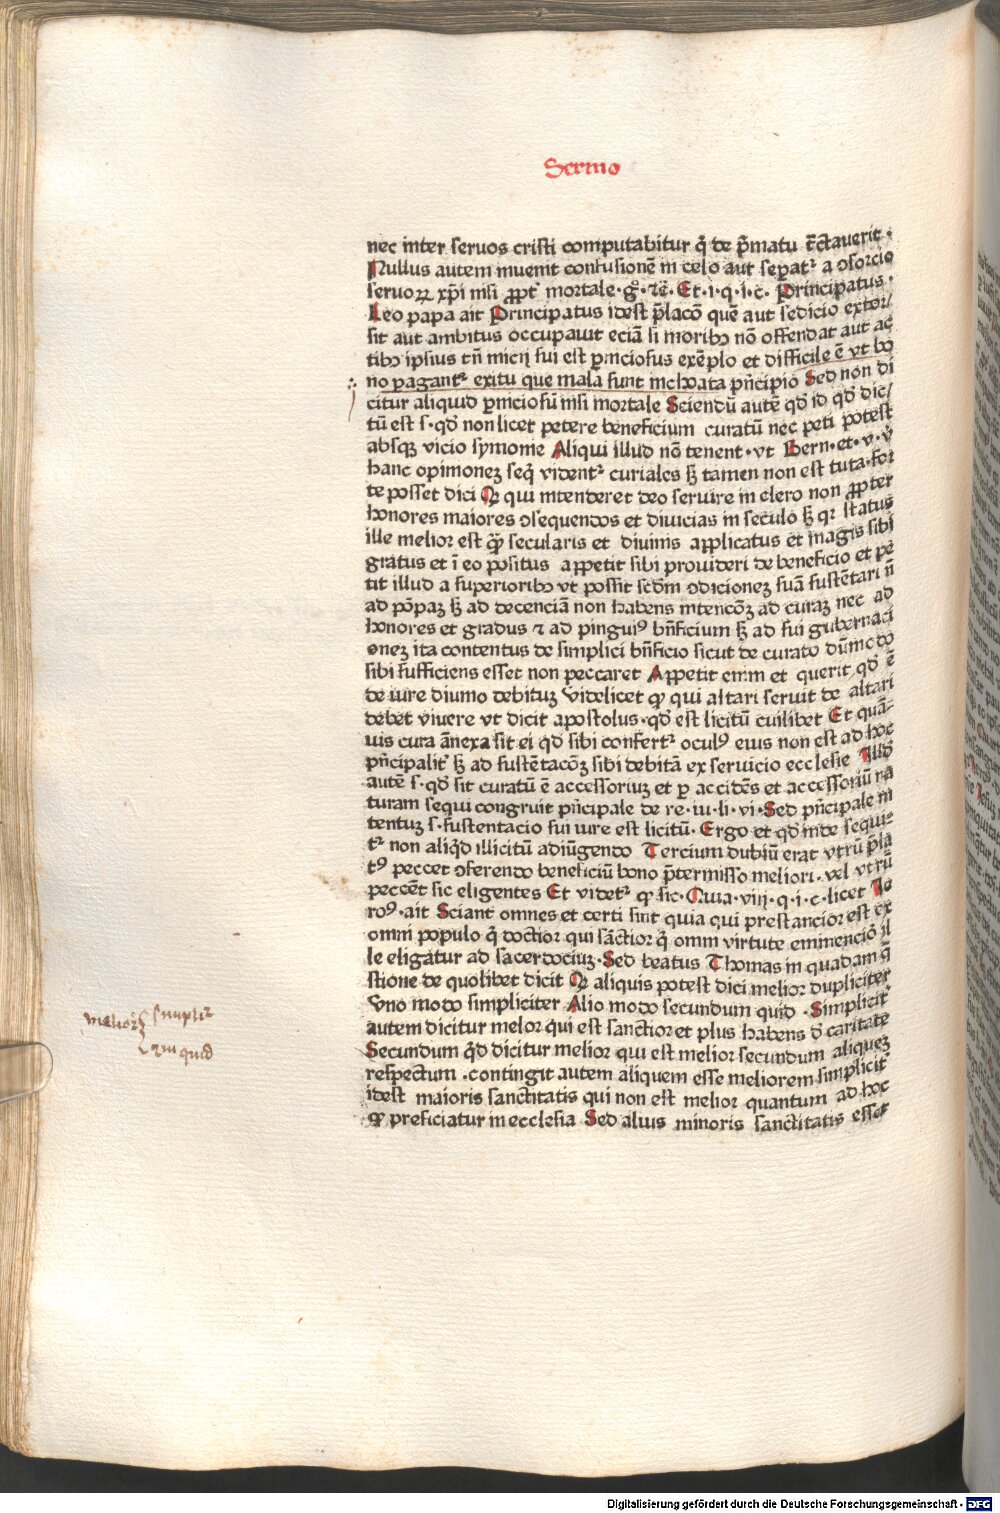 Sermo
nec inter seruos cristi computabitur q̄ de p̄matu t̄ctauerit ·
Nullus autem inuenit confusionē in celo aut sep̲atr̄ a ↄsorcio
seruoꝝ xp̄i nisi ꝓpt̄ mortale · gͦ · ⁊c̄ · Et · i · q · i · c · Principatus ·
Leo papa ait Principatus idest p̄lacōꝫ quē aut sedicio extor/
sit aut ambitus occupauit eciā si moribꝰ nō offendat aut ac
tibꝰ ipsius tn̄ inicij sui est ꝑniciosus exēplo et difficile ē vt bo
no pagantr̄ exitu que mala sunt inchoata pn̄cipio Sed non di
citur aliquid ꝑniciosū nisi mortale Sciendū autē qd̄ id qd̄ dic/
tū est s · qd̄ non licet petere beneficium curatū nec peti potest
absqꝫ vicio symonie Aliqui illud nō tenent · vt Bern · et · v · v̄
hanc opinionez seq̄ videntr̄ curiales sꝫ tamen non est tuta · for
te posset dici Qꝫ qui intenderet deo seruire in clero non ꝓpter
honores maiores ↄsequendos et diuicias in seculo sꝫ qꝛ status
ille melior est qͣꝫ secularis et diuinis applicatus ēt magis sibi
gratus et ī eo positus appetit sibi prouideri de beneficio et pe
tit illud a superioribꝰ vt possit scd̄m ↄdicionez suā sustētari n̄
ad pōpaz sꝫ ad decenciā non habens intencōꝫ ad curaz nec ad
honores et gradus ⁊ ad pinguiꝰ bn̄ficium sꝫ ad sui gubernaci
onez ita contentus de simplici bn̄ficio sicut de curato dūmodo
sibi sufficiens esset non peccaret Appetit enim et querit qd̄ ē
de iure diuino debituz videlicet qꝫ qui altari seruit de altari
debet viuere vt dicit apostolus · qd̄ est licitū cuilibet Et quā-
uis cura ānexa sit ei qd̄ sibi confertr̄ oculꝰ eius non est ad hoc
pn̄cipalit̄ sꝫ ad sustētacōꝫ sibi debitā ex seruicio ecclesie Illd̄
autē s · qd̄ sit curatū ē accessoriuz et ꝑ accidēs et accessoriū na
turam sequi congruit pn̄cipale de re · iu · li · vi · Sed pn̄cipale in
tentuz s · sustentacio sui iure est licitū · Ergo et qd̄ inde sequi⸗
tr̄ non aliqd̄ illicitū adiūgendo Tercium dubiū erat vtrū p̄la
tꝰ peccet ↄferendo beneficiū bono p̄termisso meliori · vel vtrū
peccēt sic eligentes Et videtr̄ qꝫ sic · Quia · viij · q · i · c · licet Ie
roꝰ · ait Sciant omnes et certi sint quia qui prestancior est ex
omni populo q̄ doctior qui sāctior q̄ omni virtute eminenciō il
le eligātur ad sacerdociuz · Sed beatus Thomas in quadam q̄
stione de quolibet dicit Qꝫ aliquis potest dici melior dupliciter
Vno modo simpliciter Alio modo secundum quid · Simplicit̄
autem dicitur melor qui est sanctior et plus habens d̄ caritate
Secundum qd̄ dicitur melior qui est melior secundum aliquez
respectum · contingit autem aliquem esse meliorem simplicit̄
idest maioris sanctitatis qui non est melior quantum ad hoc
qꝫ preficiatur in ecclesia Sed alius minoris sanctitatis esset
melior simplir
quid
Digitalisierung gefördert durch die Deutsche Forschungsgemeinschaft - DFG